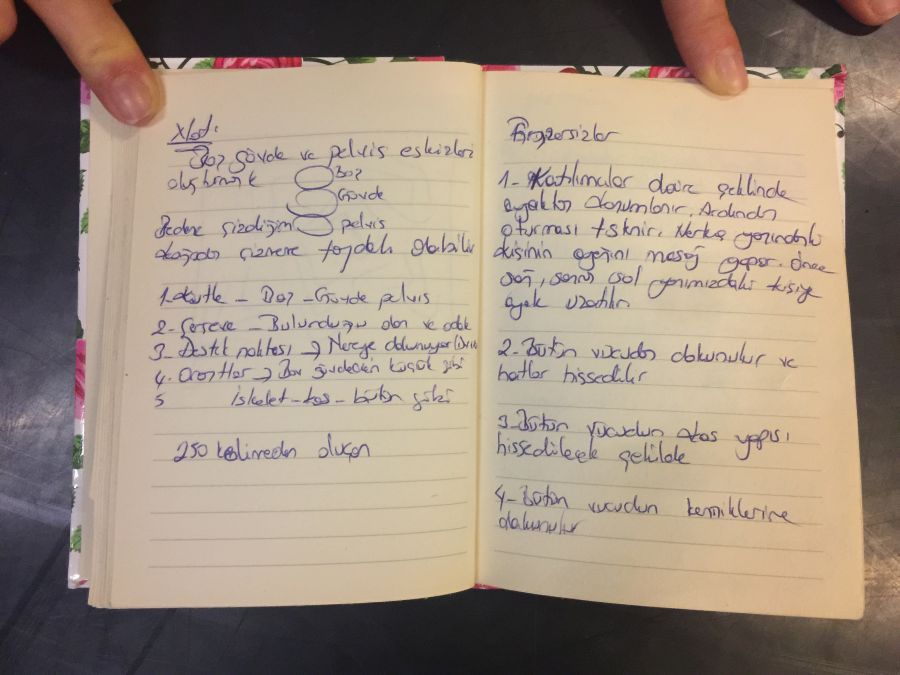 Baş gövde ve pelvis eskizleri
oluşturmak
Baş
Gövde
Bedene çizdiğim
pelvis
olabilir
1. kütle - Baş - Gövde pelvis
2- Çerçeve - Bulunduğu alan ve odak
3- Destek noktası → Nereye dokunuyor
4. Orantılar → Baş gövdeden küçük gibi
5 İskelet - kas - bütün gibi
250 kelimeden oluşan
Egzersizler
1- Katılımcılar daire şeklinde
ayakta konumlanır. Ardından
oturması istenir. Herkes yanındaki
kişinin ayağını masaj yapar. önce
sağ, sonra sol yanımızdaki kişiye
ayak uzatılır.
2- Bütün vücuda dokunulur ve
hatlar hissedilir
3- Bütün vucudun kas yapısı
hissedilecek şekilde
4- Bütün vucudun kemiklerine
dokunulur